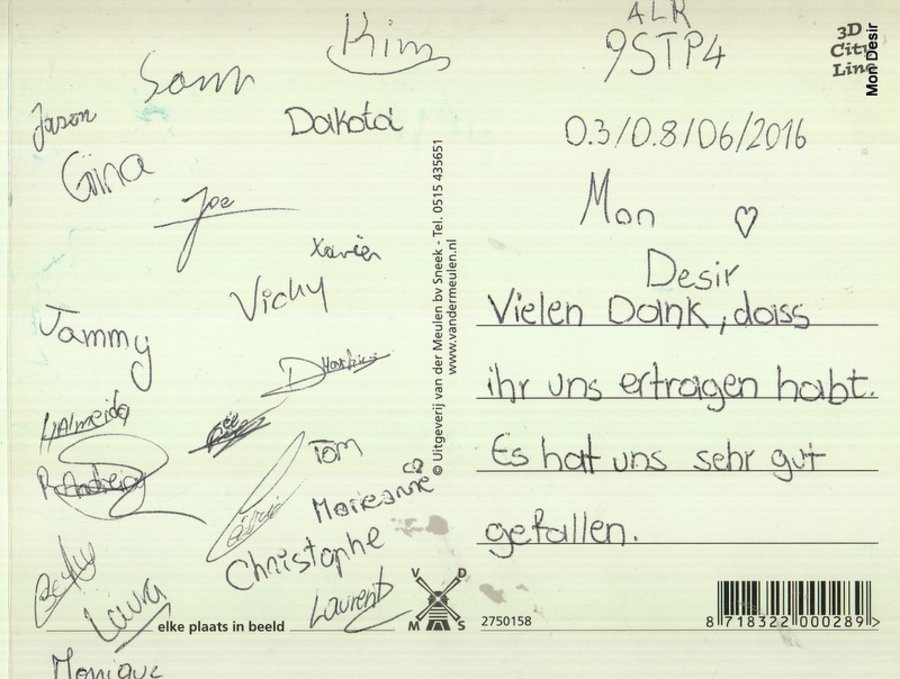 Kim
Sam
Jason
Dakota
Gina
Joe
Xavier
Vicky
Jammy
Tom
Marieanne
Christophe
Laura
Laurent
Monique
elke plaats in beeld
© Uitgeverij van der Meulen bv Sneek - Tel. 0515 435651
www.vandermeulen.nl
V D
M S
ALR
9STP4
3D
City
Line
Mon Desir
03/08/06/2016
Mon ♡
Desir
Vielen Dank, dass
ihr uns ertragen habt.
Es hat uns sehr gut
gefallen.
2750158
8 718322 000289 >